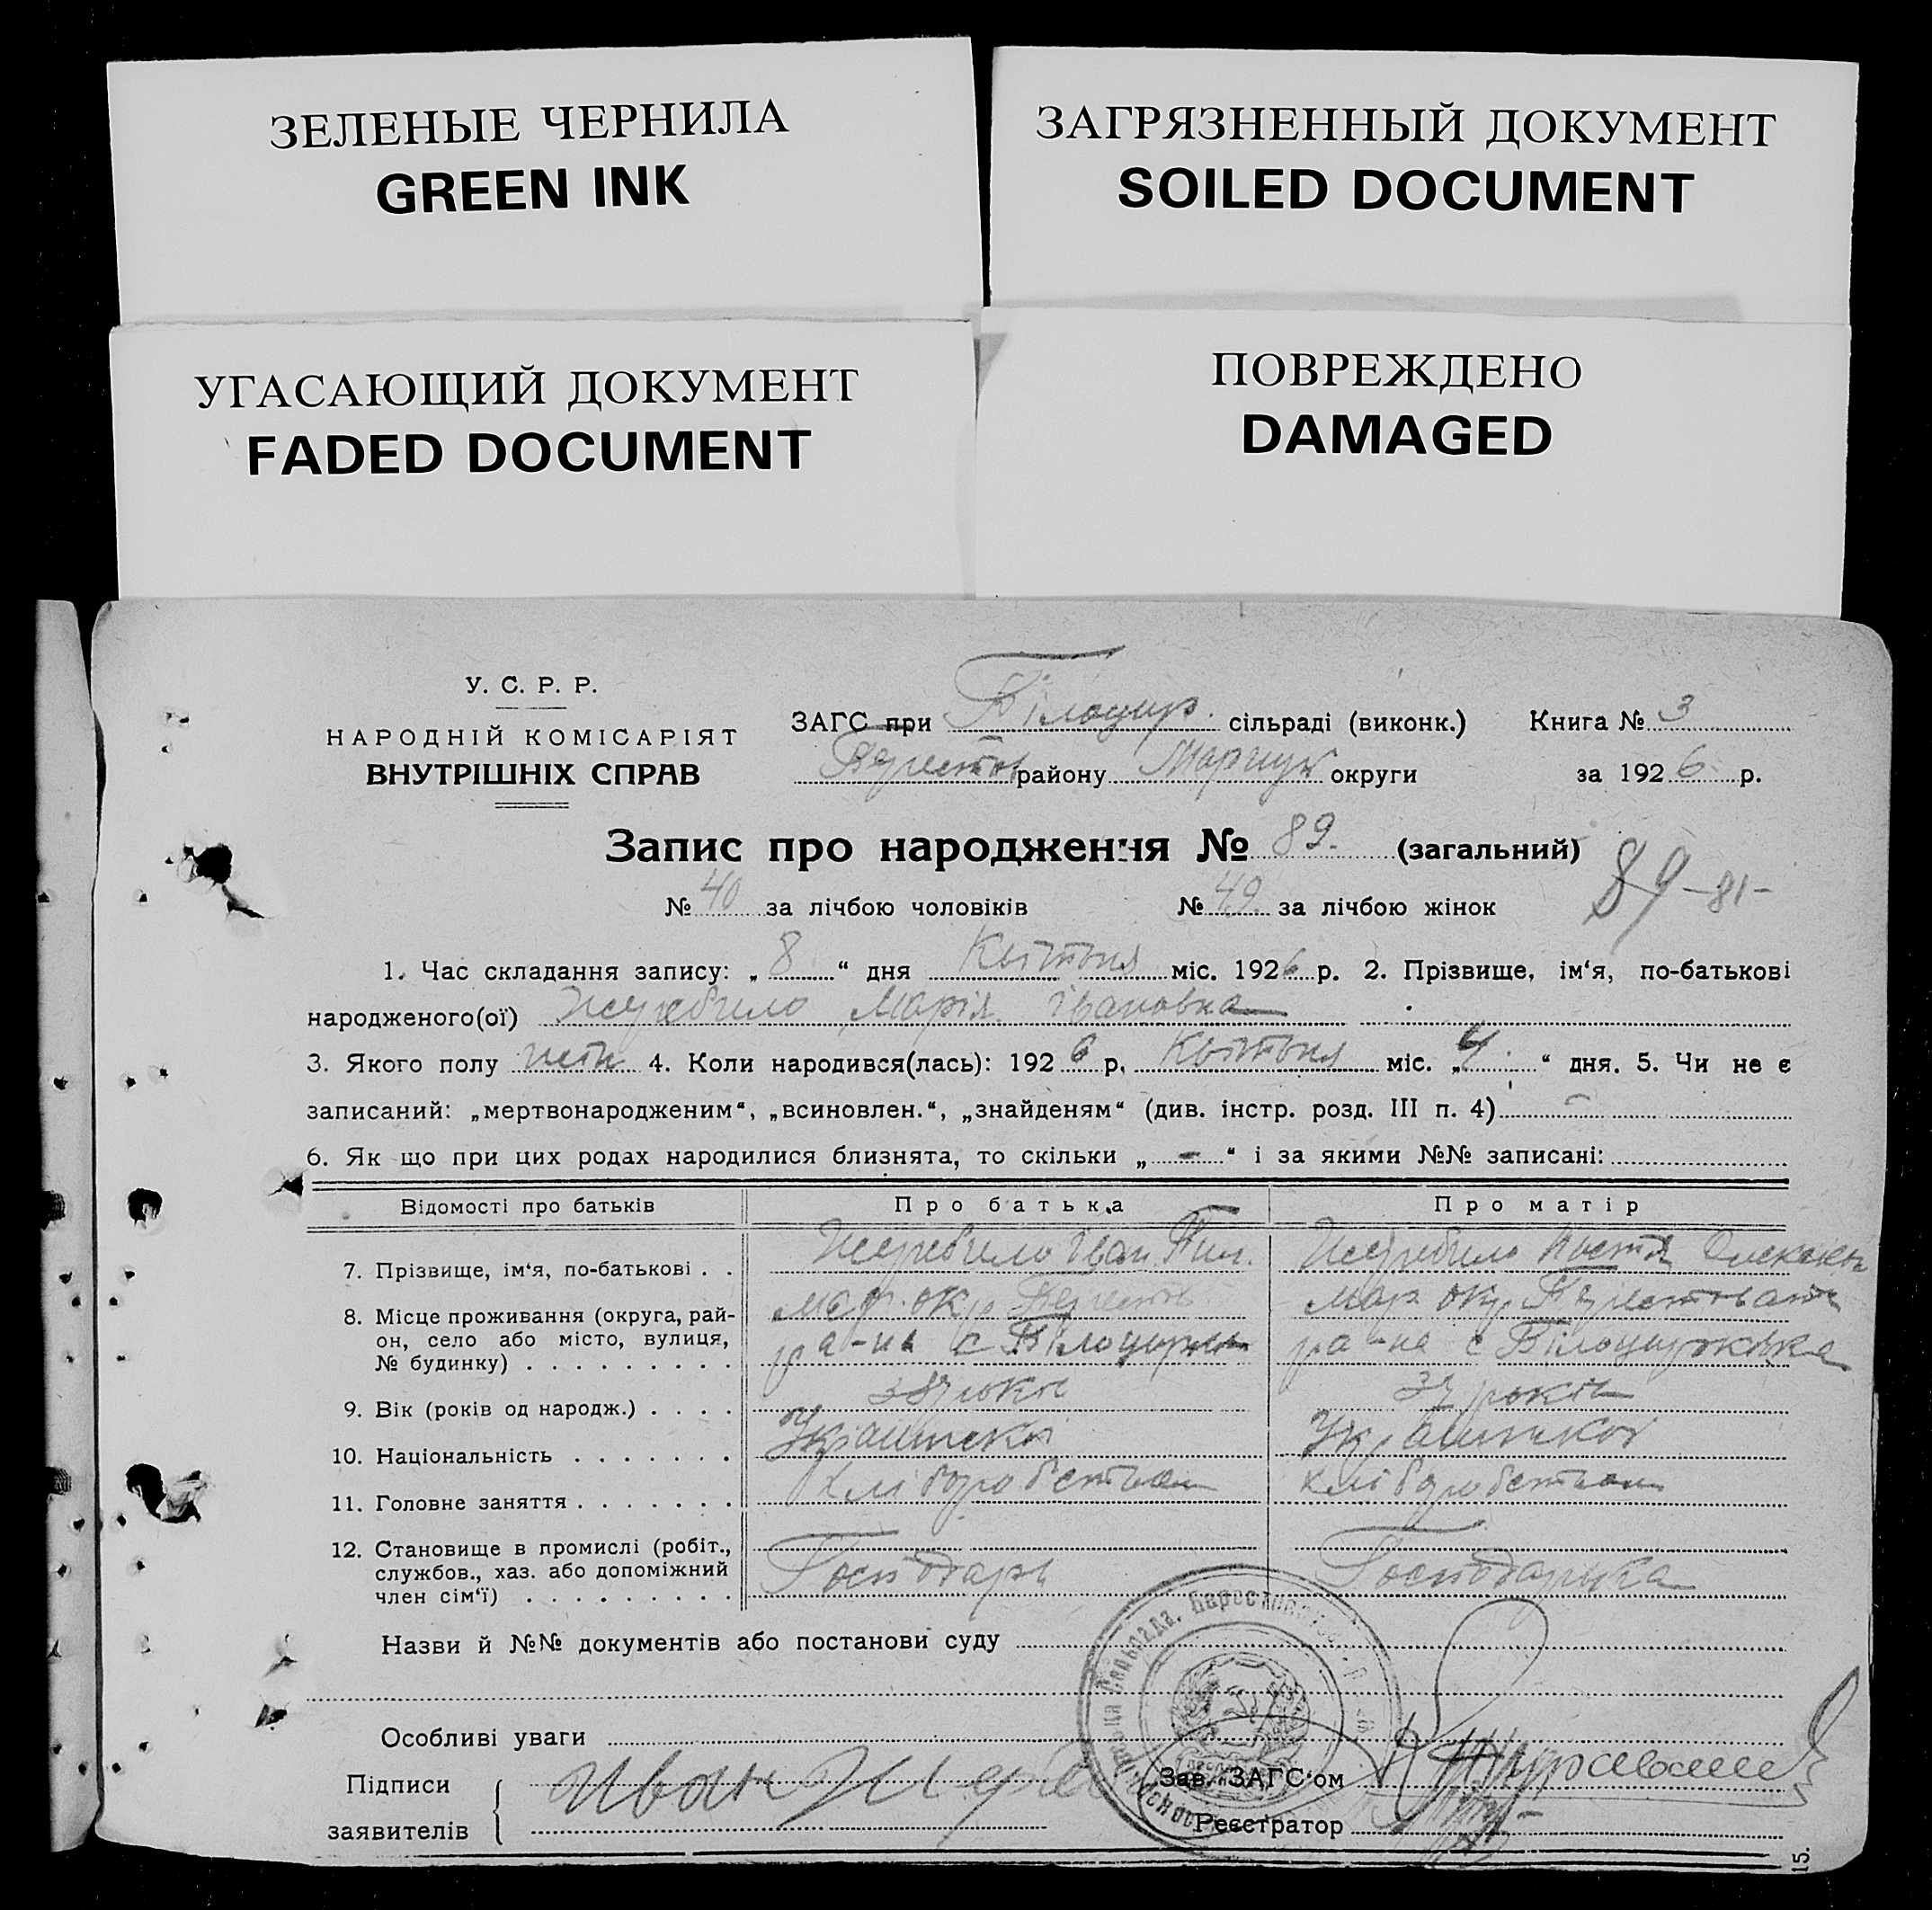 ЗЕЛЕНЫЕ ЧЕРНИЛА
GREEN INK
ЗАГРЯЗНЕННЫЙ ДОКУМЕНТ
SOILED DOCUMENT
УГАСАЮЩИЙ ДОКУМЕНТ
FADED DOCUMENT
ПОВРЕЖДЕНО
DAMAGED
У. С. Р. Р.
НАРОДНІЙ КОМІСАРІЯТ
ВНУТРІШНІХ СПРАВ
ЗАГС при сільраді (виконк.) Книга № 3
району округи за 1926 р.
Запис про народження № 89. (загальний) 89 - 81 -
№ 40 за лічбою чоловіків № 49. за лічбою жінок
1. Час складання запису: „ 8 “ дня Квітня міс. 1926 р. 2. Прізвище, ім‘я, по-батькові
народженого(ої) Жеребило Марія Івановна
3. Якого полу жін 4. Коли народився(лась): 1926 р. Квітня міс. „ 4 “ дня. 5. Чи не є
записаний: „мертвонародженим“, „всиновлен.“, „знайденям“ (див. інстр. розд. III п. 4) -
6. Як що при цих родах народилися близнята, то скільки „ - “ і за якими №№ записані:
Відомості про батьків Про батька Про матір
7. Прізвище, ім‘я, по-батькові . . Жеребило Іван Жеребило
8. Місце проживання (округа, рай- мар. окр мар окр
он, село або місто, вулиця, ра-на с ра-на с Білоцерковка
№ будинку) . . . . . . . . .
9. Вік (років од народж.) . . . . років
10. Національність . . . . . . .
11. Головне заняття . . . . . . . хліборобство хліборобство
12. Становище в промислі (робіт.,
службов., хаз. або допоміжний Господарь Господарька
член сім‘ї) . . . . . . . . .
Назви й №№ документів або постанови суду
Особливі уваги
Підписи Иван Зав. ЗАГС‘ом
заявителів Реєстратор
15.